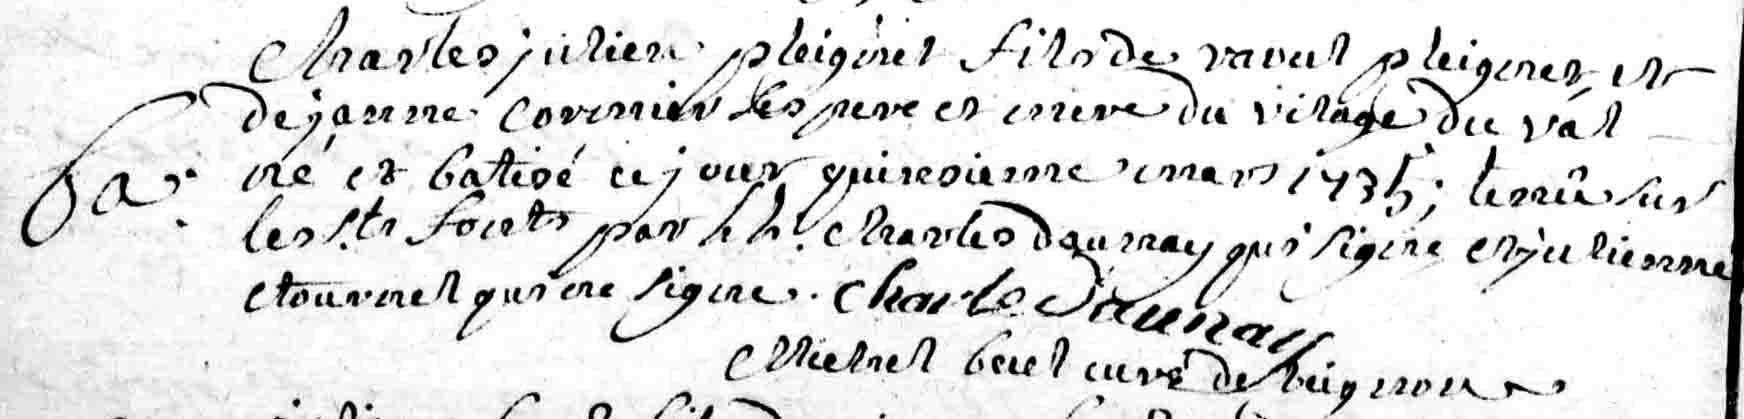 Charles julien pleignet fils de raoul pleignet, et
de janne cormier ses pere et mere du vilage du val
Ba: né et batisé ce jour quinsieme mars 1735; tenu sur
les sts fonts par h.h. charles daunay qui signe et julienne
touvnel qui ne signe. Charle Daunay
Michel curé de beignon